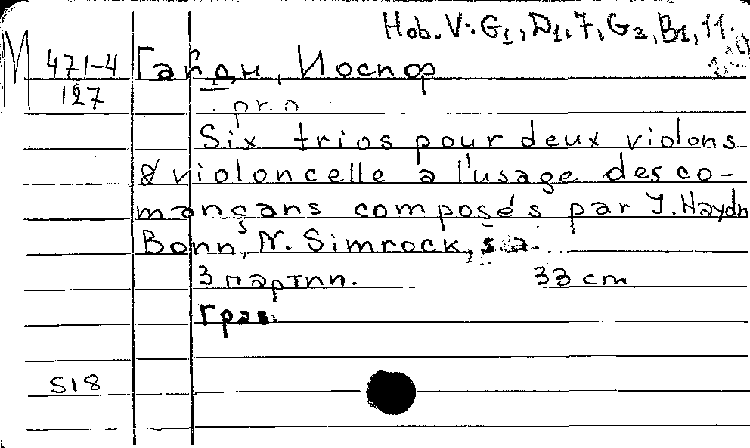 Hob. V: G1, D1, 7, G3, B1, 11.
М 471-4 Гайдн, Иоспф
127
pr.n
Six trios pour deux violons
& violoncelle a l'usage des co-
mançans composés par J. Haydn
Bonn, N. Simrock, s.a.
3 партпп. 33 cm
Грав.
518